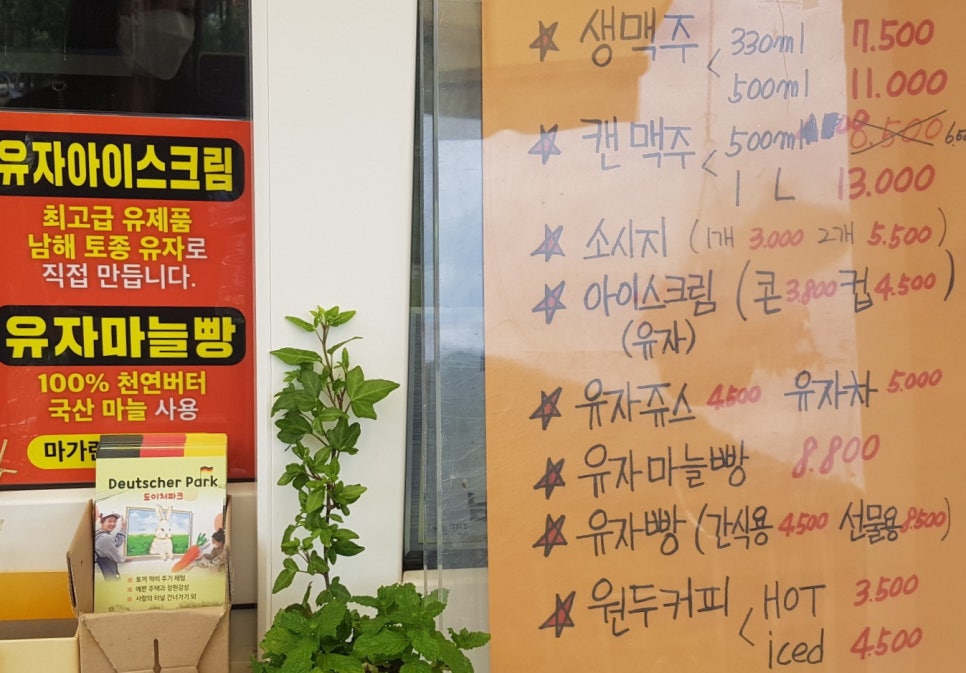 유자아이스크림
최고급 유제품
남해 토종 유자로
직접 만듭니다.
유자마늘빵
100% 천연버터
국산 마늘 사용
마가린
Deutscher Park
도이처파크
※ 토끼 먹이 주기 체험
※ 예쁜 주택과 정원감상
※ 사랑의 터널 건너가기 외
★ 생맥주 < 330ml 7.500
500ml 11.000
★ 캔맥주 < 500ml 8.500 6.50
1 L 13.000
★ 소시지 (1개 3.000 2개 5.500)
★ 아이스크림 (콘 3.800 컵 4.500)
(유자)
★ 유자쥬스 4.500 유자차 5.000
★ 유자마늘빵 8.800
★ 유자빵 (간식용 4.500 선물용 8.500)
★ 원두커피 < HOT 3.500
iced 4.500